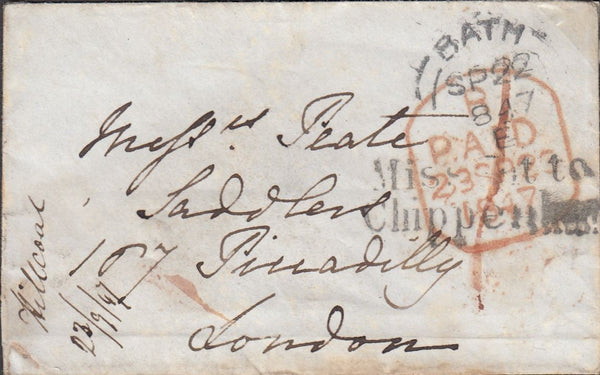 BATH
SP 22
1847
E
PAID
23 SP 23
1847
Missent to
Chippenham
Mess.rs Peate
Saddlers
167 Piccadilly
London
23/9/47